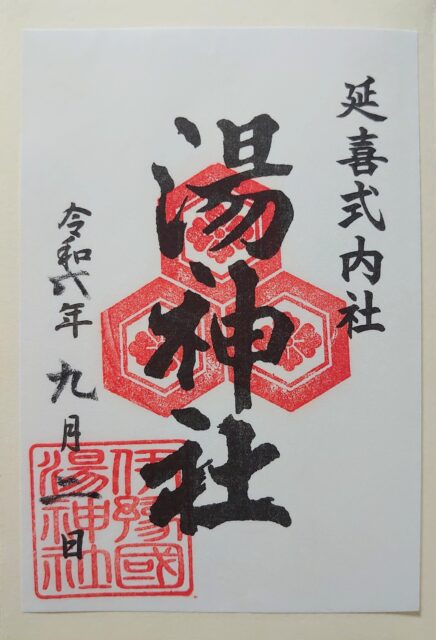 延喜式内社
湯神社
令和六年九月二日
伊豫國
湯神社